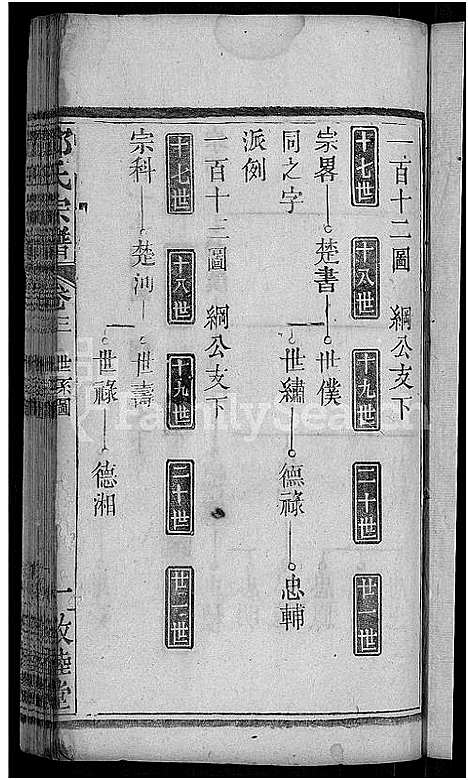 一百十二圖　綱公支下
十七世　十八世　十九世　二十世　廿一世
宗畧　楚書　世僕
同之字　世繡　德祿　忠輔
派例
一百十三圖　綱公支下
十七世　十八世　十九世　二十世　廿一世
宗科　楚河　世壽
世祿　德湘
氏宗譜　卷三　世系圖　敦睦堂
FamilySearch